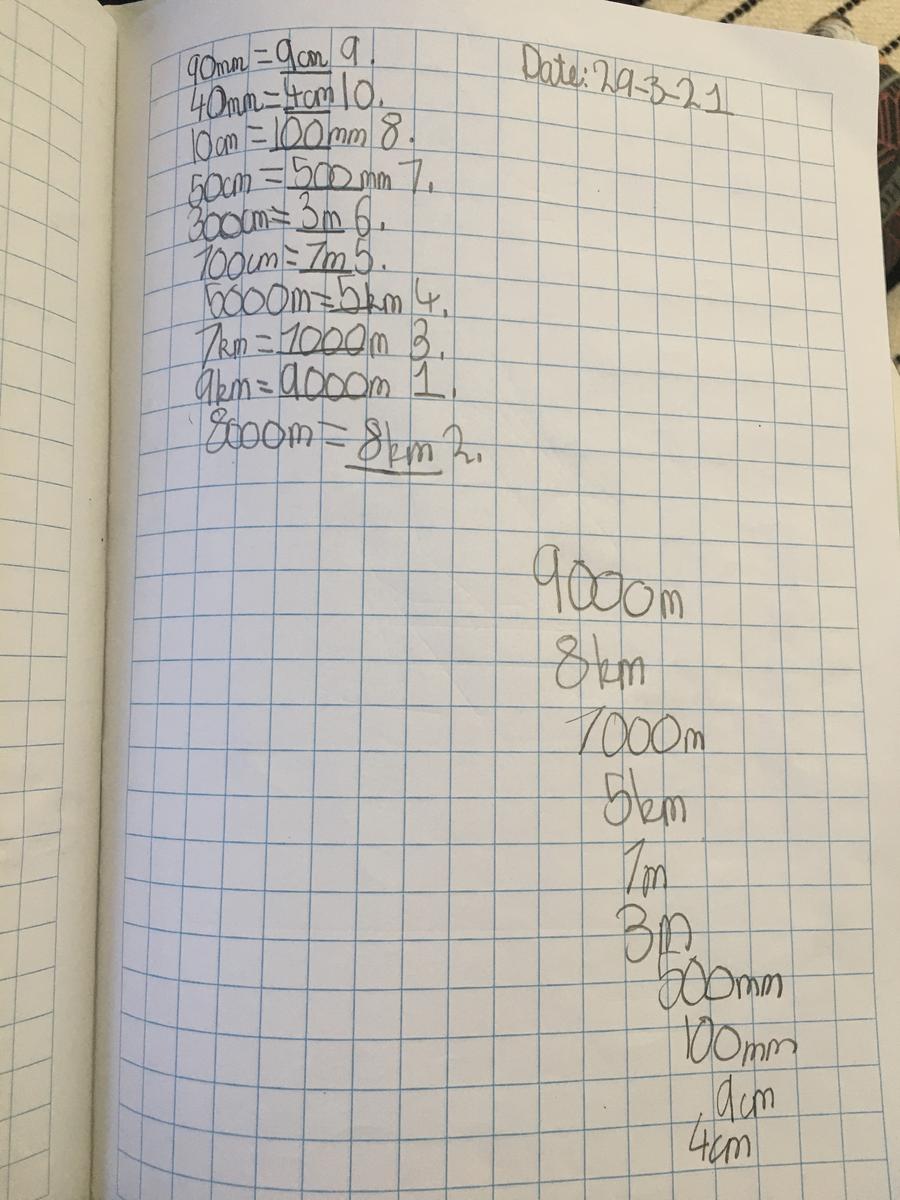 90mm = 9cm 9.
Date: 29-3-21
40mm = 4cm 10.
10cm = 100mm 8.
50cm = 500mm 7.
300cm = 3m 6.
700cm = 7m 5.
5000m = 5km 4.
7km = 7000m 3.
9km = 9000m 1.
8000m = 8km 2.
9000m
8km
7000m
5km
7m
3m
500mm
100mm
9cm
4cm